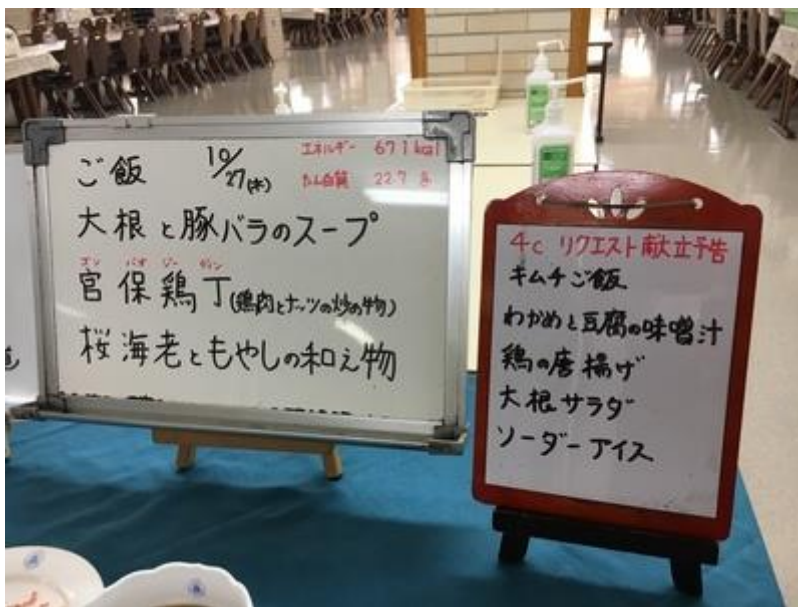 ご飯 10/27(木) エネルギー 671kcal
たん白質 22.7g
大根と豚バラのスープ
ゴン バオ ジー ディン
宮保鶏丁(鶏肉とナッツの炒め物)
桜海老ともやしの和え物
4c リクエスト献立予告
キムチご飯
わかめと豆腐の味噌汁
鶏の唐揚げ
大根サラダ
ソーダーアイス